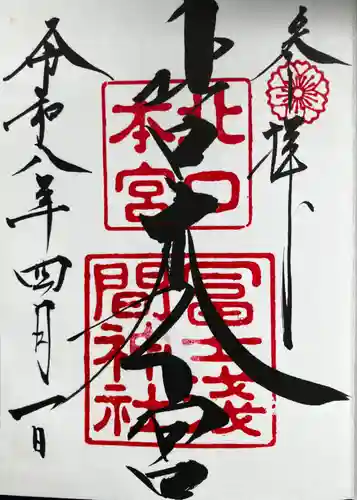 参拝
北口本宮
北口
本宮
冨士浅
間神社
令和八年四月一日